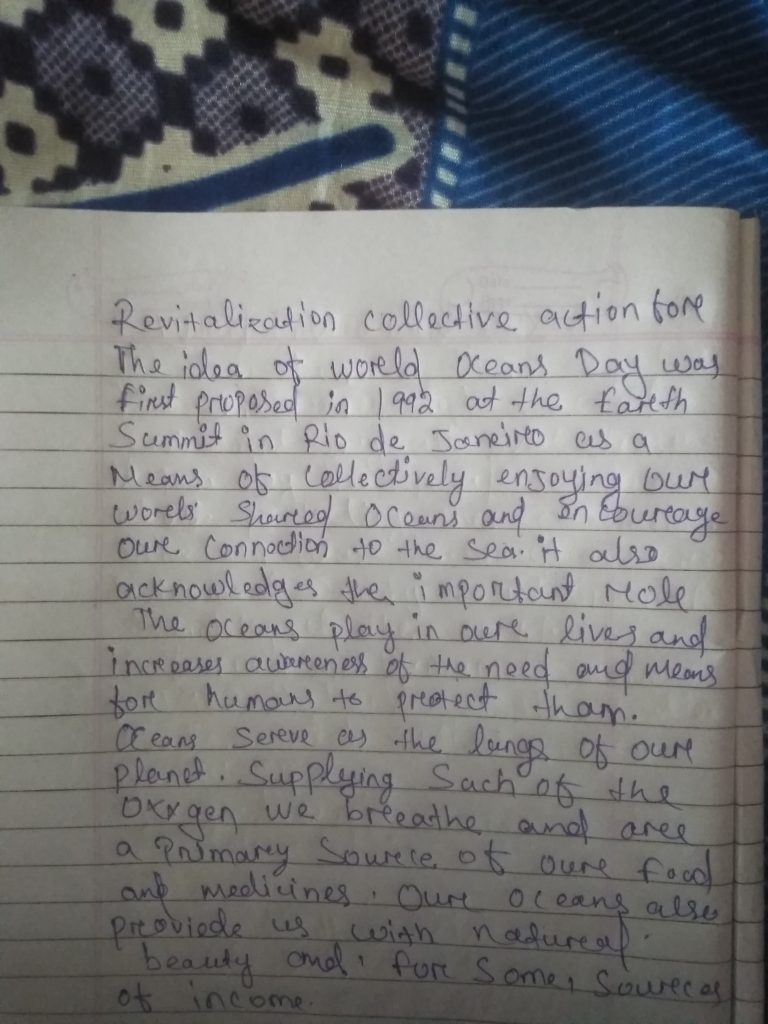 Revitalization collective action fore
The idea of world Oceans Day was
first proposed in 1992 at the Eareth
Summit in Rio de Janeireo as a
Means of Collectively enjoying oure
worels shared Oceans and encoureage
oure Connoction to the sea. it also
acknowledges the important role
The oceans play in oure lives and
increases awareness of the need and means
fore humans to protect tham.
Oceans sereve as the langs of oure
planet. Supplying Sach of the
Oxxgen we breathe and aree
a Primarey Source of oure food
and medicines. Oure oceans also
preoviede us with natureal.
beauty and, fore Some, Sources
of income.